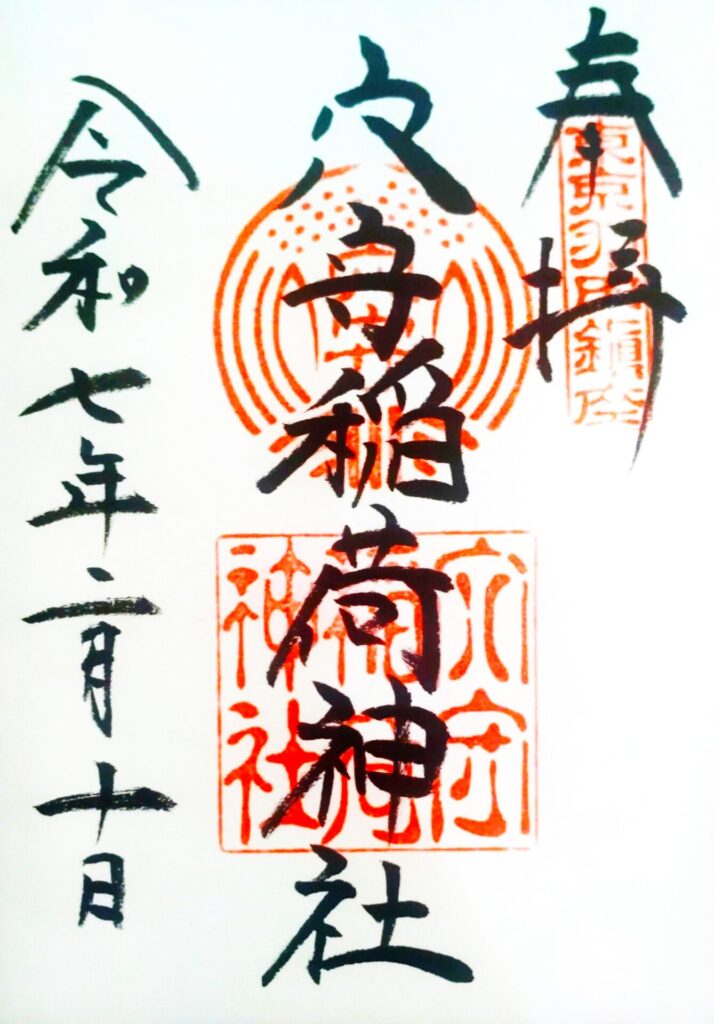 奉拝
東京羽田鎮座
穴守稲荷神社
穴守
稲荷
神社
令和七年二月十日